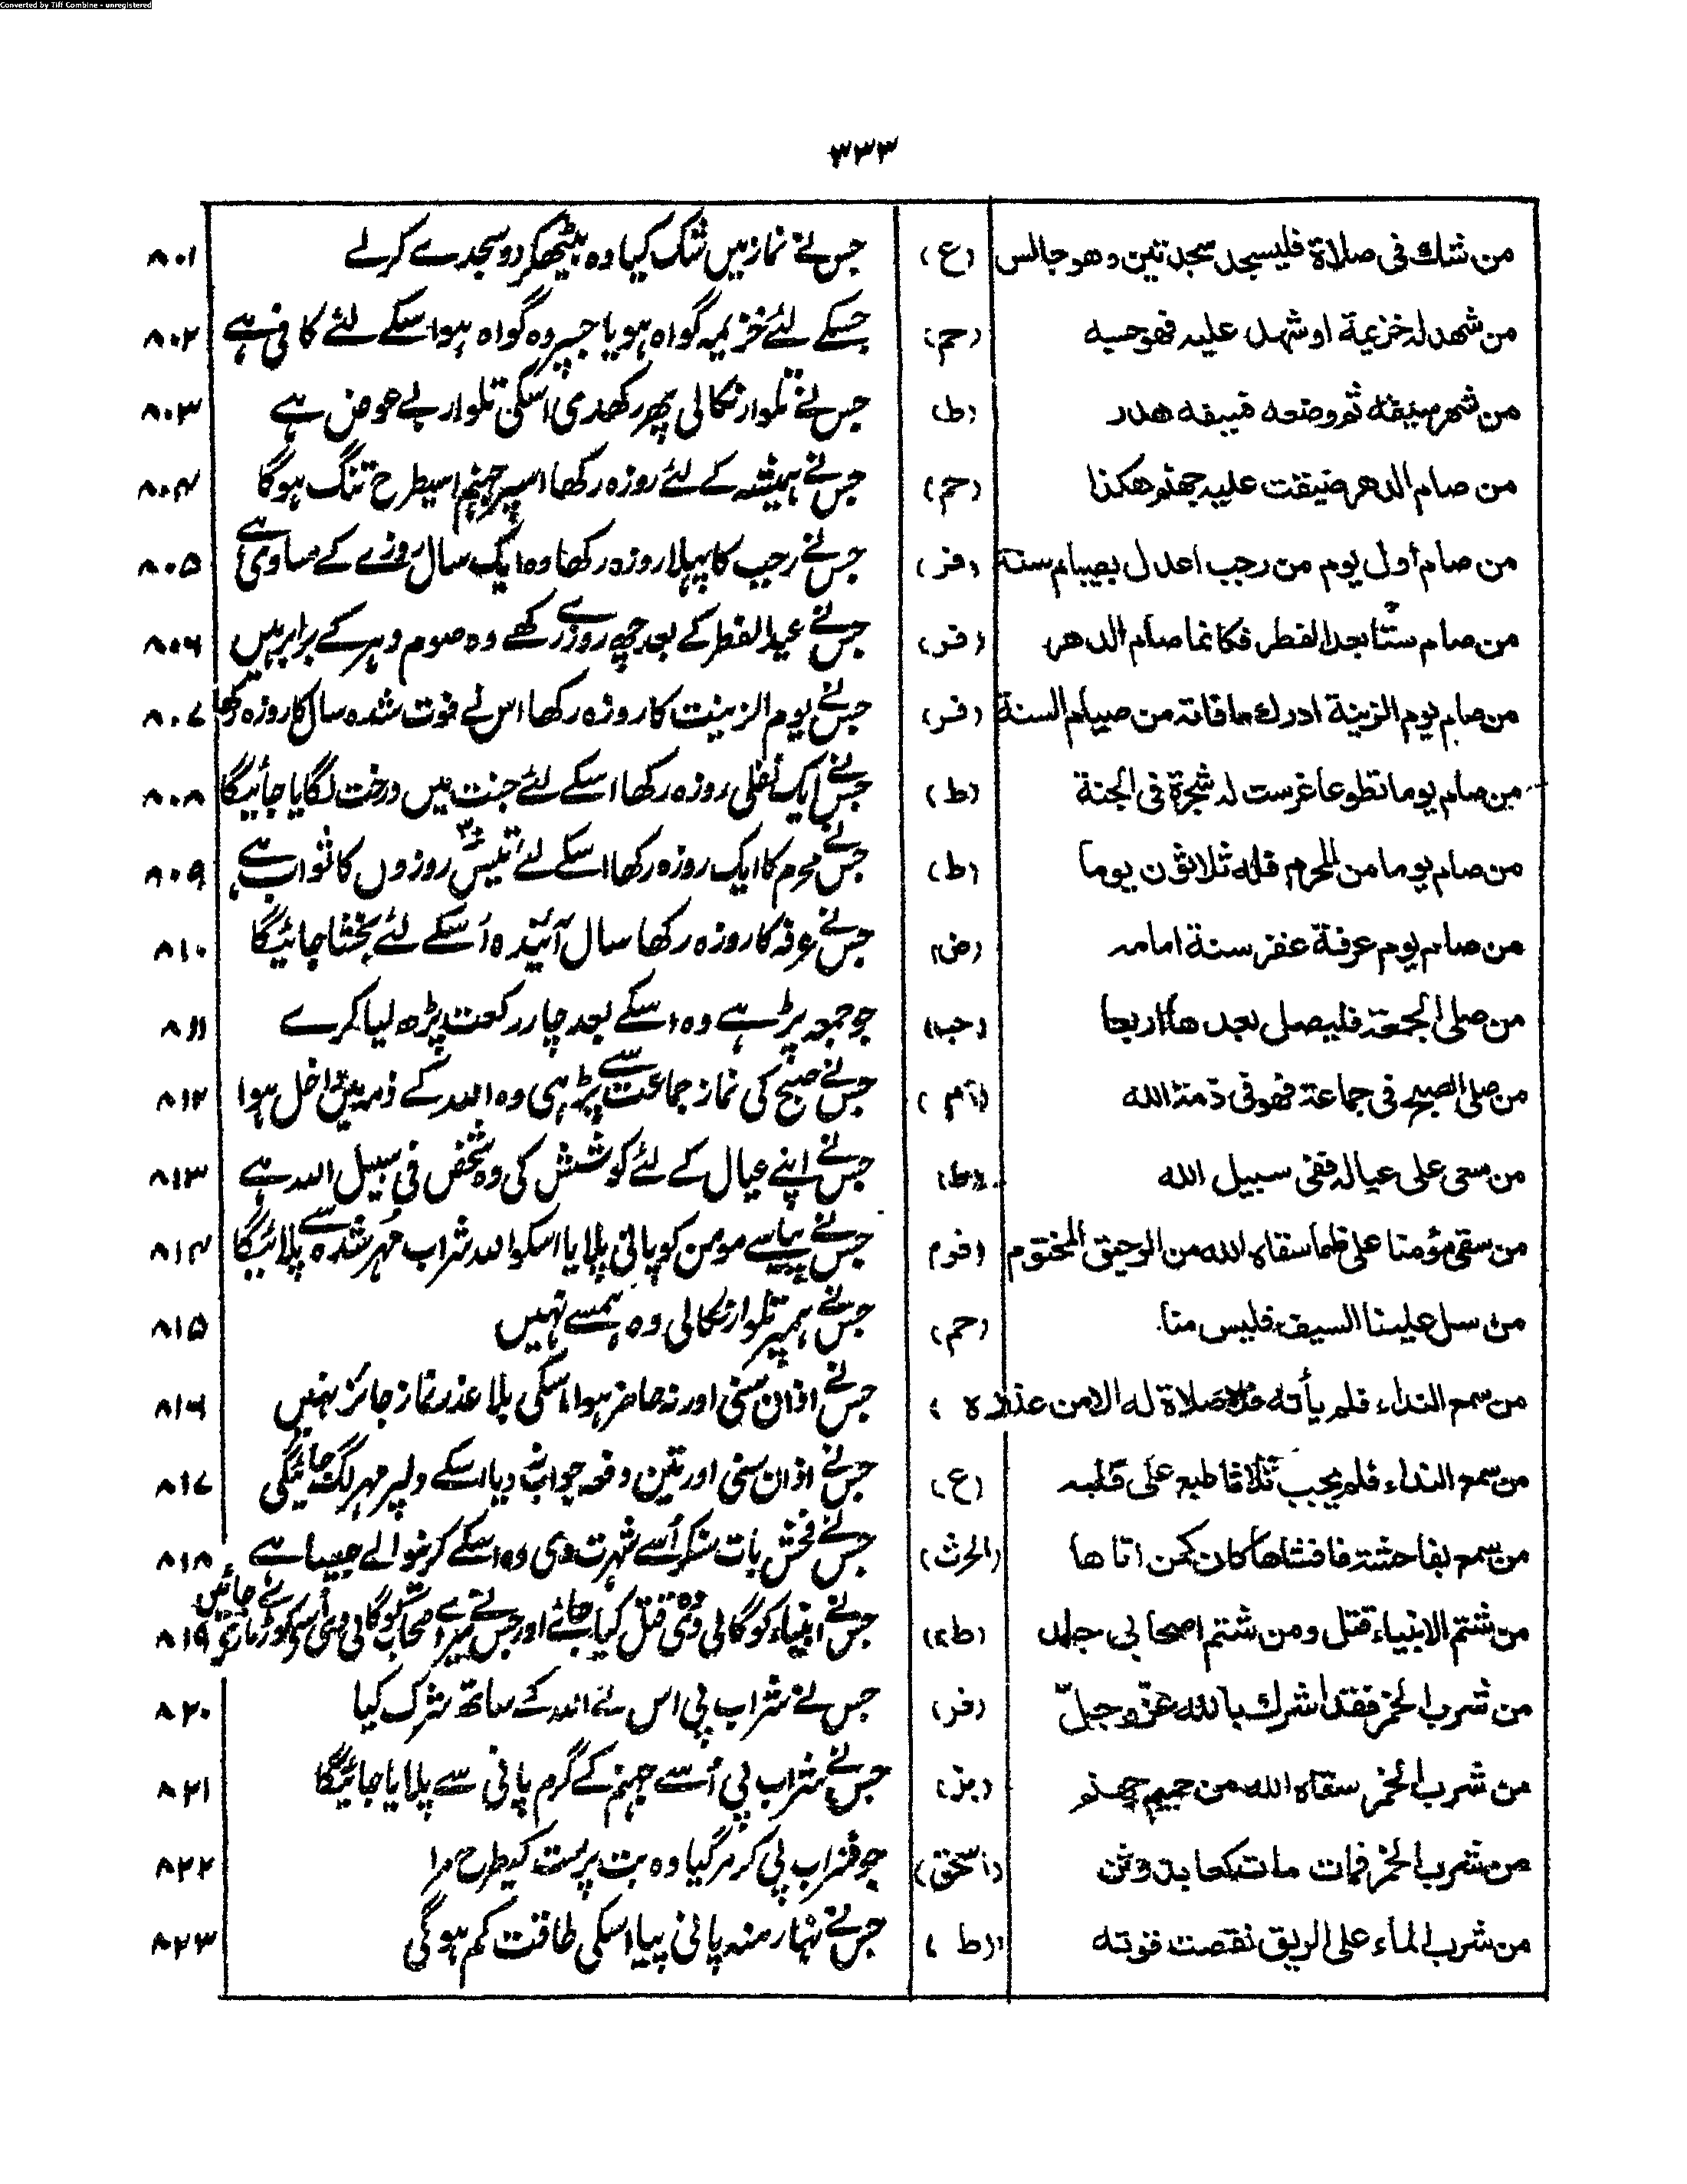 Converted by Tiff Combine - unregistered
۳۳۳
من شك فى صلاة فليسجد سجدتين وهو جالس (ع) جس نے نماز میں شک کیا وہ بیٹھکر دو سجدے کرلے ۸۰۱
من شهد له خزيمة او شهد عليه فهو حسبه (حم) جسکے لئے خزیمہ گواہ ہو یا جسپر وہ گواہ ہو اسکے لئے کافی ہے ۸۰۲
من شهر سيفه ثم وضعه فسيفه هدر (ط) جس نے تلوار نکالی پھر رکھدی اسکی تلوار بے عوض ہے ۸۰۳
من صام الدهر ضيقت عليه جهنم هكذا (حم) جس نے ہمیشہ کے لئے روزہ رکھا اسپر جہنم اسیطرح تنگ ہوگا ۸۰۴
من صام أول يوم من رجب اعدل بصيام سنة (فر) جس نے رجب کا پہلا روزہ رکھا وہ ایک سال روزے کے مساوی ہے ۸۰۵
من صام ستّا بعد الفطر فكانما صام الدهر (فر) جس نے عید الفطر کے بعد چھ روزے رکھے وہ صوم دہر کے برابر ہیں ۸۰۶
من صام يوم الزينة ادرك ما فاته من صيام السنة (فر) جس نے یوم الزینت کا روزہ رکھا اس نے فوت شدہ سال کا روزہ رکھا ۸۰۷
من صام يوما تطوعا غرست له شجرة فى الجنة (ط) جس نے ایک نفلی روزہ رکھا اسکے لئے جنت میں درخت لگایا جائیگا ۸۰۸
من صام يوما من المحرم فله ثلاثون يوما (ط) جس نے محرم کا ایک روزہ رکھا اسکے لئے تیس ۳۰ روزوں کا ثواب ہے ۸۰۹
من صام يوم عرفة غفر سنة امامه (ض) جس نے عرفہ کا روزہ رکھا سال آئیندہ اُسکے لئے بخشا جائیگا ۸۱۰
من صلى الجمعة فليصل بعدها اربعا (حب) جو جمعہ پڑہے وہ اسکے بعد چار رکعت پڑھ لیا کرے ۸۱۱
من صلى الصبح فى جماعة فهو فى ذمة الله جس نے صبح کی نماز جماعت سے پڑہی وہ اللہ کے ذمہ میں داخل ہوا ۸۱۲
من سعى على عياله ففى سبيل الله (ط) جس نے اپنے عیال کے لئے کوشش کی وہ شخص فی سبیل اللہ ہے ۸۱۳
من سقى مؤمنا على ظما سقاه الله من الرحيق المختوم جس نے پیاسے مومن کو پانی پلایا اسکو اللہ شراب مُہر شدہ سے پلائیگا ۸۱۴
من سل علينا السيف فليس منا (حم) جس نے ہمپر تلوار نکالی وہ ہمسے نہیں ۸۱۵
من سمع النداء فلم يأته فلا صلاة له الا من عذر جس نے اذان سنی اور نہ حاضر ہوا اسکی بلا عذر نماز جائز نہیں ۸۱۶
من سمع النداء فلم يجب ثلاثا طبع على قلبه (ع) جس نے اذان سنی اور تین دفعہ جواب نہ دیا اسکے دلپر مہر لگ جائیگی ۸۱۷
من سمع بفاحشة فافشاها كان كمن اتاها (الحرث) جس نے فحش بات سنکر اُسے شہرت دی وہ اسکے کرنیوالے جیسا ہے ۸۱۸
من شتم الانبياء قتل ومن شتم اصحابى جلد (ط) جس نے انبیاء کو گالی دی وہ قتل کیا جائے اور جس نے میرے اصحاب کو گالی دی اُسکو کوڑے مارے جائیں ۸۱۹
من شرب الخمر فقد اشرك بالله عزّ وجلّ (فر) جس نے شراب پی اس نے اللہ کے ساتھ شرک کیا ۸۲۰
من شرب الخمر سقاه الله من حميم جهنم (بز) جس نے شراب پی اُسے جہنم کے گرم پانی سے پلایا جائیگا ۸۲۱
من شرب الخمر فمات مات كعابد وثن (اسحٰق) جو شراب پی کر مرگیا وہ بت پرست کیطرح مرا ۸۲۲
من شرب الماء على الريق نقصت قوته (ط) جس نے نہار منہ پانی پیا اسکی طاقت کم ہوگی ۸۲۳